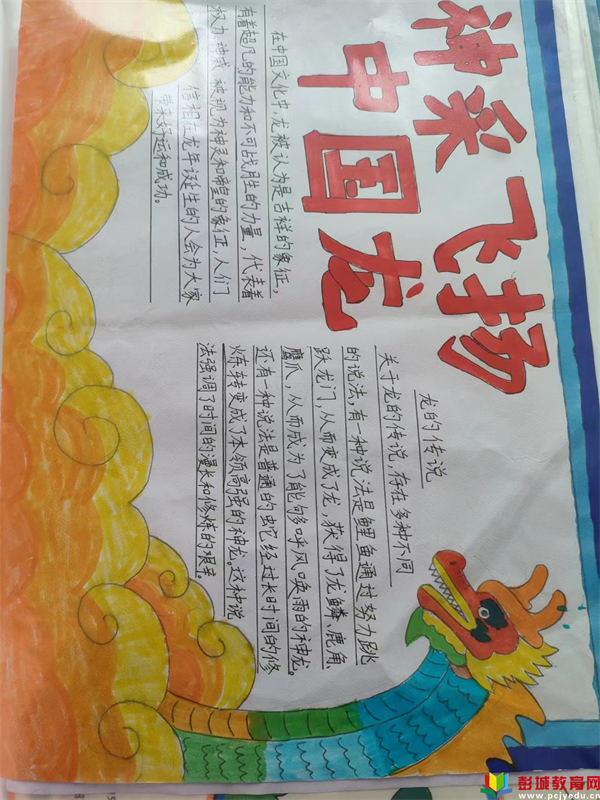 神采飞扬
中国龙
在中国文化中,龙被认为是吉祥的象征,
有着超凡的能力和不可战胜的力量,代表着
权力、神武,被视为神灵和希望的象征,人们
龙年诞生的人会为大家
带来好运和成功。
龙的传说
关于龙的传说,存在多种不同
的说法,有一种说法是鲤鱼通过努力跳
跃龙门,从而变成了龙,获得了龙鳞、鹿角、
鹰爪,从而成为了能够呼风唤雨的神龙。
还有一种说法是普通的蛇经过长时间的修
炼转变成了本领高强的神龙。这种说
法强调了时间的漫长和修炼的艰辛。
彭城教育网
www.pcjyedu.cn